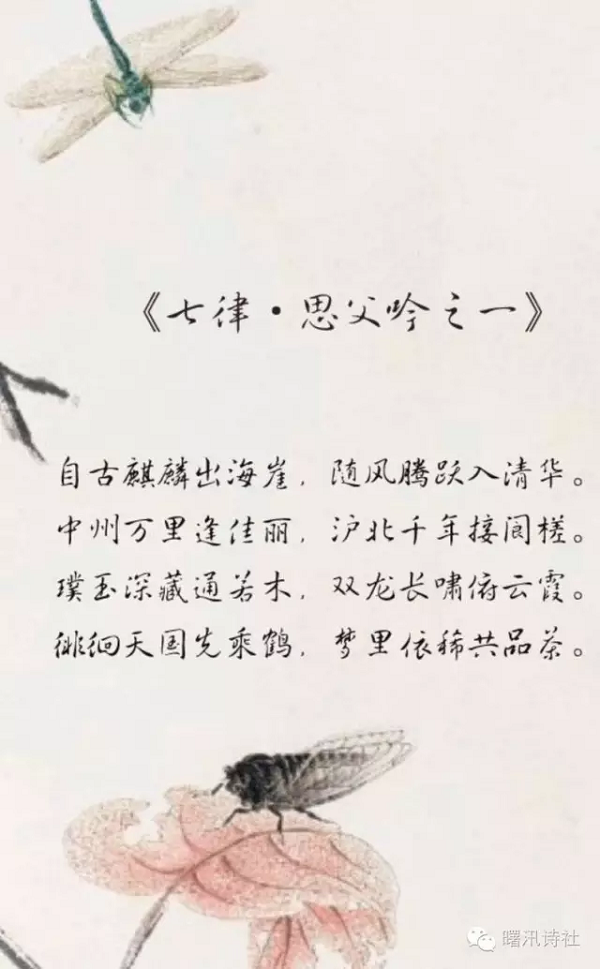 《七律·思父吟之一》
自古麒麟出海崖，随风腾跃入清华。
中州万里逢佳丽，沪北千年接阆槎。
璞玉深藏通若木，双龙长啸俯云霞。
徘徊天国先乘鹤，梦里依稀共品茶。
曙汛诗社